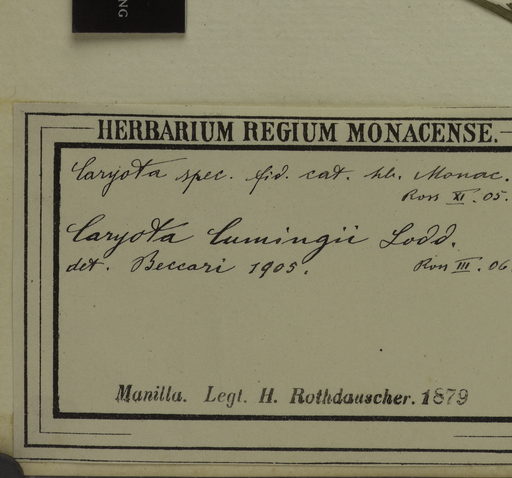 NG
HERBARIUM REGIUM MONACENSE.
Caryota spec. fid. cat. hb. Monac.
Ross XI. 05.
Caryota Cumingii Lodd.
det. Beccari 1905. Ross III. 06
Manilla. Legt. H. Rothdauscher. 1879